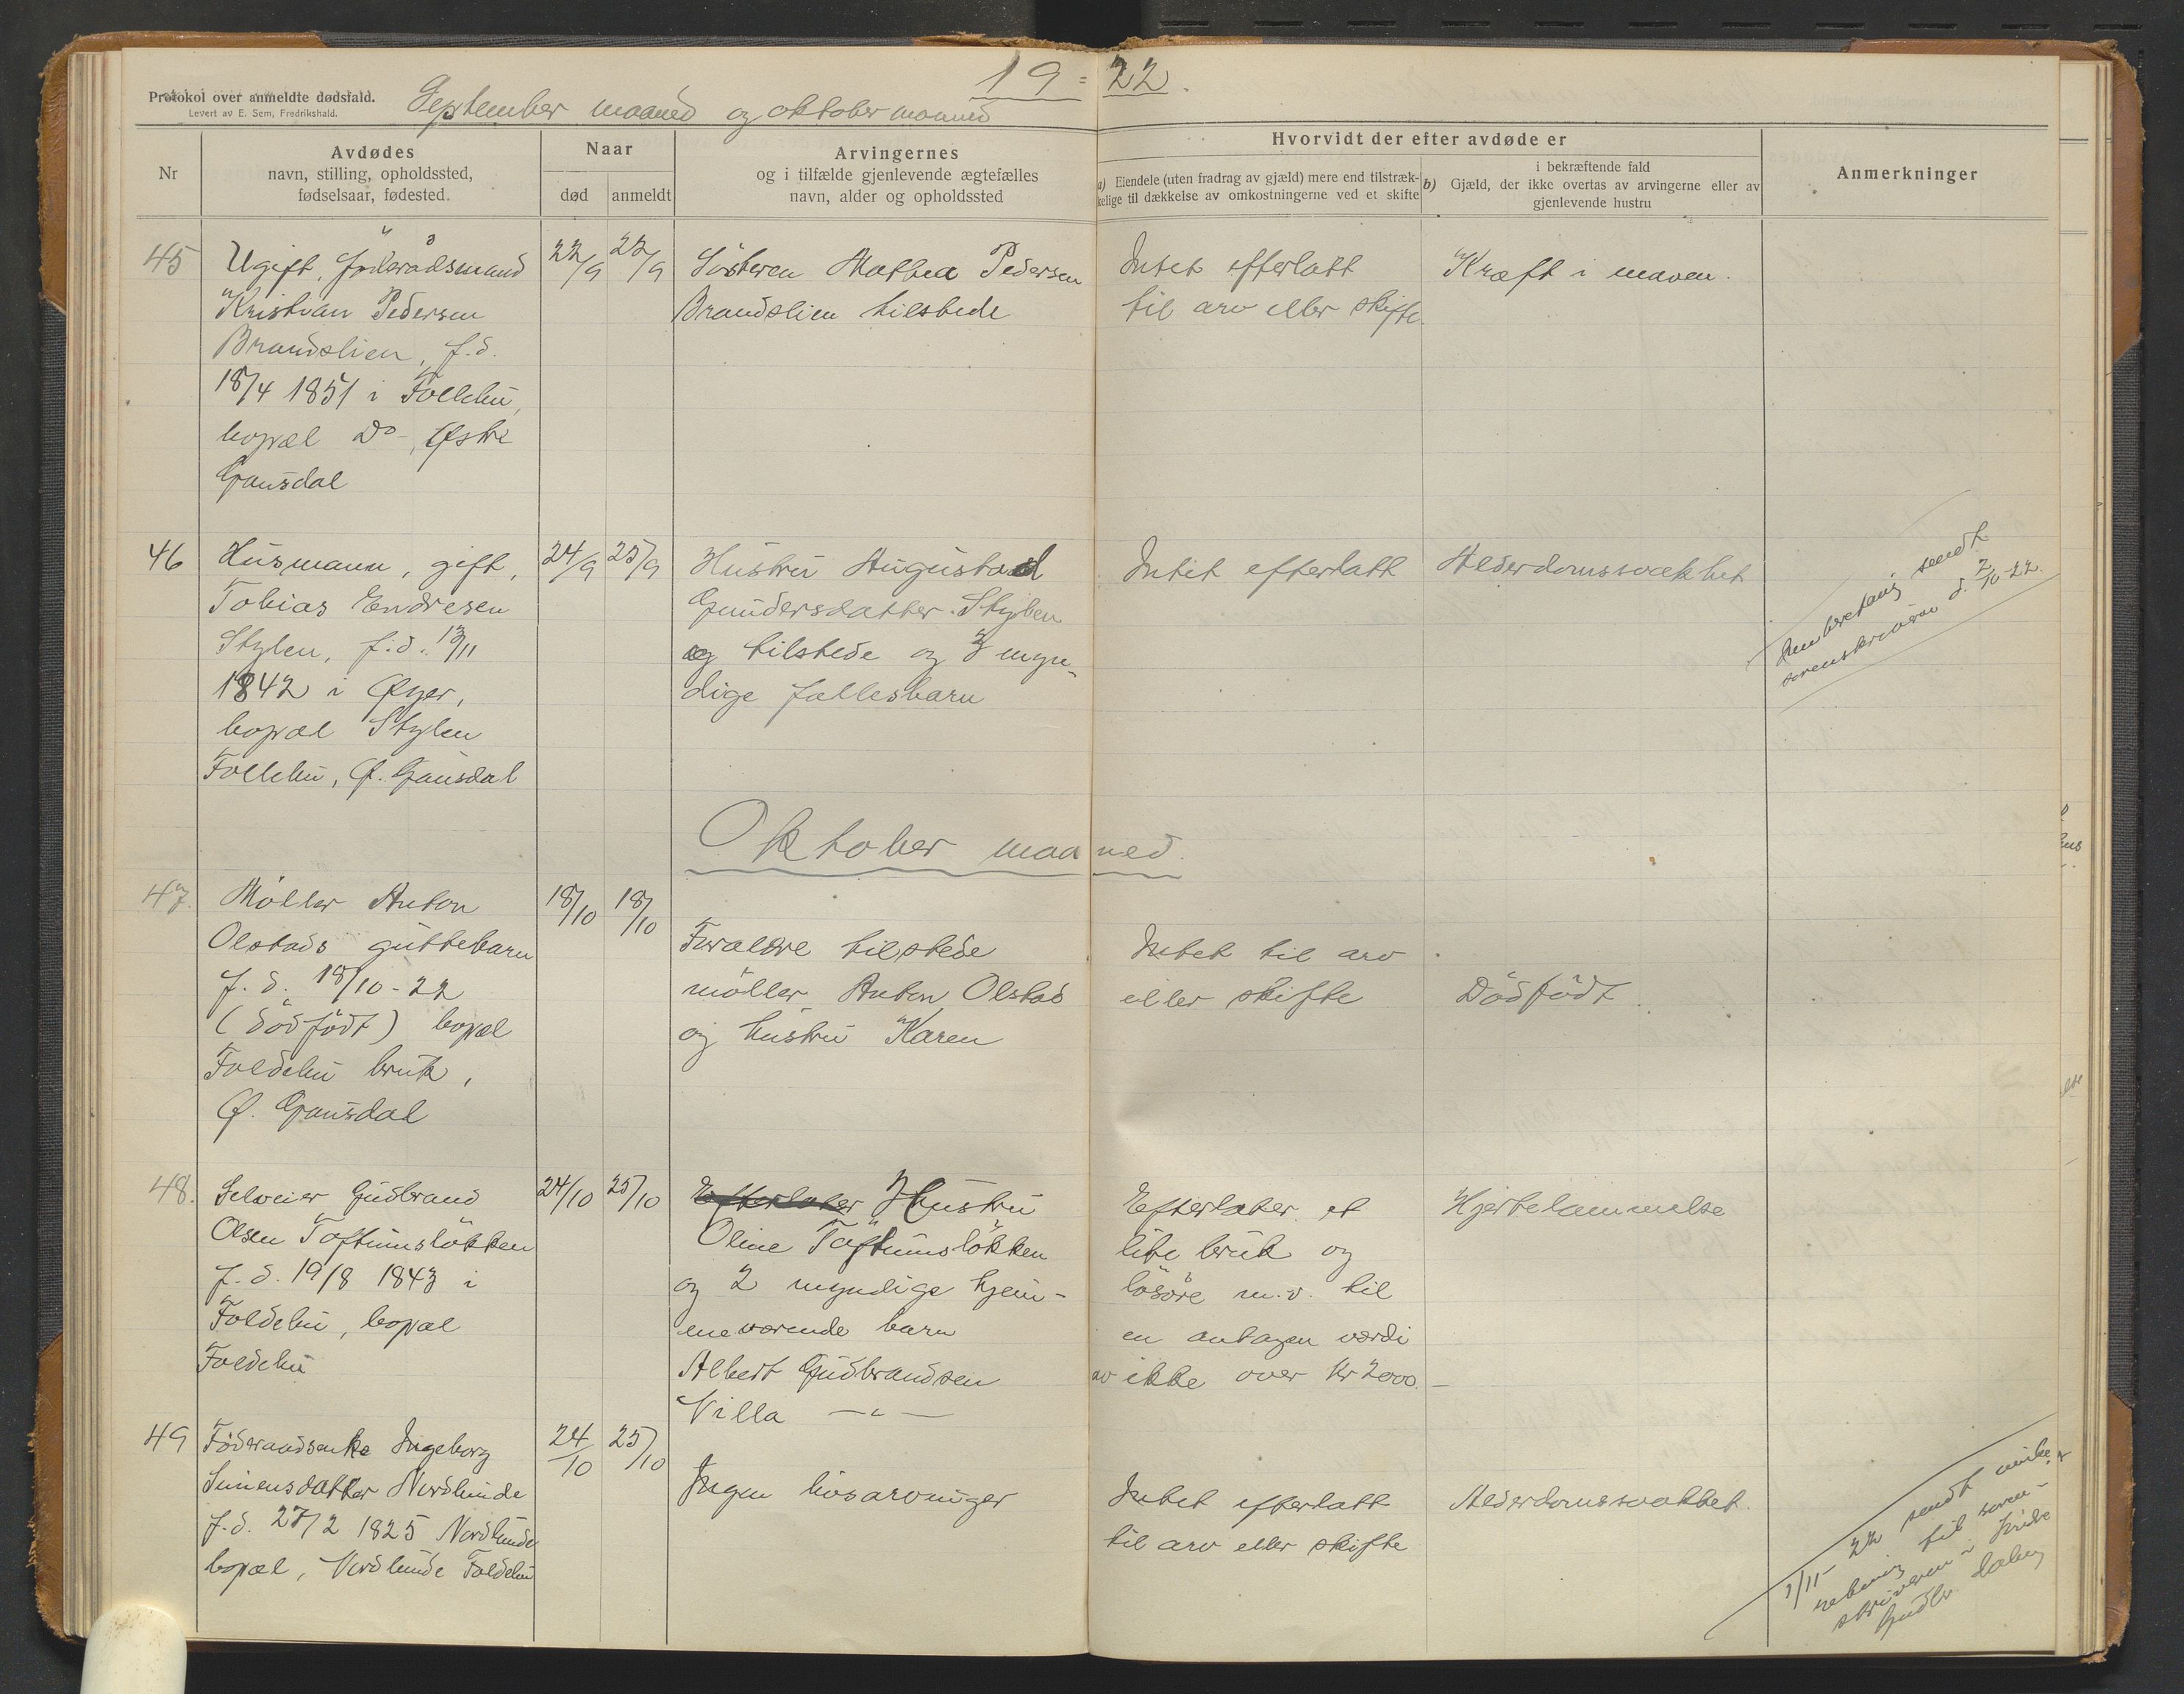 19=22.
Protokol over anmeldte dødsfald.
Levert av E. Sem, Fredrikshald.
September maaned og oktober maaned
Nr
Avdødes
navn, stilling, opholdssted,
fødselsaar, fødested.
Naar
død
anmeldt
Arvingernes
og i tilfælde gjenlevende ægtefælles
navn, alder og opholdssted
Hvorvidt der efter avdøde er
a) Eiendele (uten fradrag av gjæld) mere end tilstræk-
kelige til dækkelse av omkostningerne ved et skifte
i bekræftende fald
b) Gjæld, der ikke overtas av arvingerne eller av
gjenlevende hustru
Anmerkninger
45
Ugift, föderådsmand
Kristian Pedersen
Brandslien, f.d.
18/4 1851 i Follebu,
bopæl Do-, Østre
Gausdal
22/9
22/9
Sösteren Mathea Pedersen
Brandslien tilstede
Intet efterlatt
til arv eller skifte.
Kræft i maven.
46
Husmann, gift,
Tobias Endresen
Stylen, f.d. 13/11
1842 i Øyer,
bopæl Stylen
Follebu, Ø. Gausdal
24/9
25/9
Hustru Augusta
Gundersdatter Stylen
og tilstede og 3 myn-
dige fællesbarn
Intet efterlatt
Alderdomssvakhet
sendt
sorenskriveren d. 2/10-22.
Oktober maaned.
47.
Möller Anton
Olstads guttebarn
f.d. 18/10-22
(dödfödt) bopæl
Foldebu bruk,
Ø. Gausdal
18/10
18/10
Forældre tilstede
möller Anton Olstad
og hustru Karen
Intet til arv
eller skifte
Dödfödt.
48.
Selveier Gudbrand
Olsen Toftumslökken
f.d. 19/8 1843 i
Foldebu, bopæl
Foldebu
24/10
25/10
Efterlater Hustru
Oline Toftumslökken
og 2 myndige hjem-
meværende barn
Albert Gudbrandsen
Villa —"—
Efterlater et
lite bruk og
lösöre m.v. til
en antagen værdi
av ikke over Kr 2000.-
Hjertelammelse
49
Föderaadsenke Ingeborg
Simensdatter Nordlunde
f.d. 27/2 1825 Nordlunde
bopæl, Nordlunde Foldebu
24/10
25/10
Ingen livsarvinger
Intet efterlatt
til arv eller skifte
Alderdomssvakhet.
1/11-22 sendt
til soren-
skriveren i